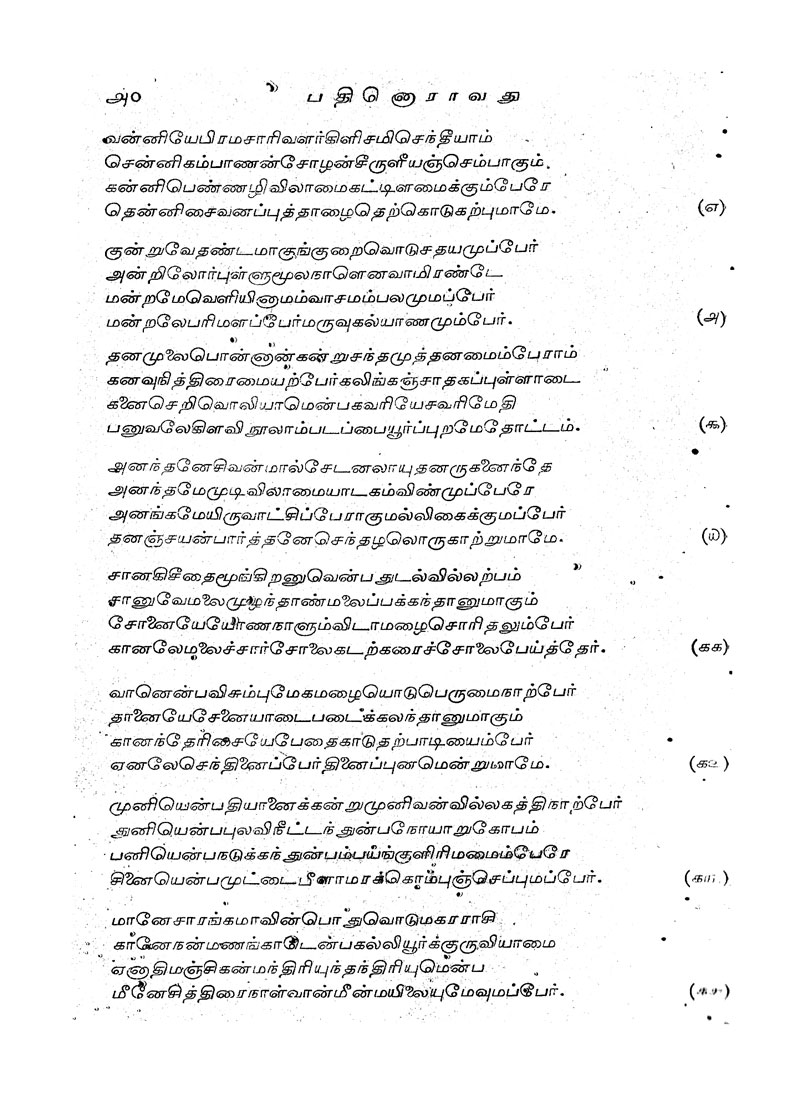 அ௦ பதினொராவது
வன்னியேபிரமசாரிவளர்கிளிசமிசெந்தீயாம்
சென்னிகம்பாணன்சோழன்சீருளீயஞ்செம்பாகும்.
கன்னிபெண்ணழிவிலாமைகட்டிளமைக்கும்பேரே
தென்னிசைவனப்புத்தாழைதெற்கொடுகற்புமாமே. (எ)
குன்றுவேதண்டமாகுங்குறைவொடுசதயமுப்பேர்
அன்றிலோர்புள்ளுமூலநாளெனவாமிரண்டே
மன்றமேவெளியினாமம்வாசமம்பலமுமப்பேர்
மன்றலேபரிமளப்பேர்மருவுகல்யாணமும்பேர். (அ)
தனமுலைபொன்னான்கன்றுசந்தமுத்தனமைம்பேராம்
கனவுநித்திரைமையற்பேர்கலிங்கஞ்சாதகப்புள்ளாடை
கனைசெறிவொலியாமென்பகவரியேசவரிமேதி
பனுவலேகிளவிநூலாம்படப்பையூர்ப்புறமேதோட்டம். (௯)
அனந்தனேசிவன்மால்சேடனலாயுதனருகனைந்தே
அனந்தமேமுடிவிலாமையாடகம்விண்முப்பேரே
அனங்கமேயிருவாட்சிப்பேராகுமல்லிகைக்குமப்பேர்
தனஞ்சயன்பார்த்தனேசெந்தழலொருகாற்றுமாமே. (௰)
சானகிசீதைமூங்கிறனுவென்பதுடல்வில்லற்பம்
சானுவேமலைமுழந்தாண்மலைப்பக்கந்தானுமாகும்
சோனையேயோணநாளும்விடாமழைசொரிதலும்பேர்
கானலேமலைச்சார்சோலைகடற்கரைச்சோலைபேய்த்தேர். (கக)
வானென்பவிசும்புமேகமழையொடுபெருமைநாற்பேர்
தானையேசேனையாடைபடைக்கலந்தானுமாகும்
கானந்தேரிசையேபேதைகாடுதற்பாடியைம்பேர்
ஏனலேசெந்தினைப்பேர்தினைப்புனமென்றுமாமே. (க௨)
முனியென்பதியானைக்கன்றுமுனிவன்வில்லகத்திநாற்பேர்
துனியென்பபுலவிநீட்டந்துன்பநோயாறுகோபம்
பனியென்பநடுக்கந்துன்பம்பயங்குளிரிமமைம்பேரே
சினையென்பமுட்டைபீளாமரக்கொம்புஞ்செப்புமப்பேர்.
மானேசாரங்கமாவின்பொதுவொடுமகரராசி
கானேநன்மணங்காடென்பகல்லியூர்க்குருவியாமை
ஏனாதிமஞ்சிகன்மந்திரியுந்தந்திரியுமென்ப
மீனேசித்திரைநாள்வான்மீன்மயிலையுமேவுமப்பேர்.